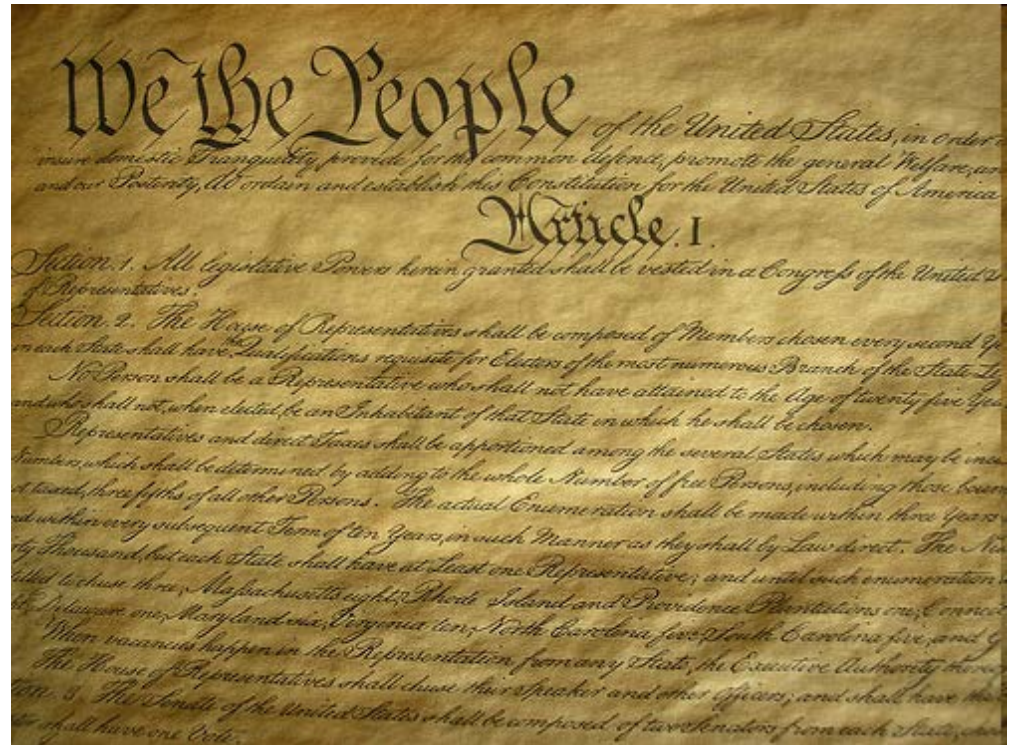 We the People of the United States, in order
insure domestic Tranquility, provide for the common defence, promote the general Welfare, an
and our Posterity, do ordain and establish this Constitution for the United States of America
Article. I.
Section. 1. All legislative Powers herein granted shall be vested in a Congress of the United S
of Representatives.
Section. 2. The House of Representatives shall be composed of Members chosen every second Ye
in each State shall have the Qualifications requisite for Electors of the most numerous Branch of the State Leg
No Person shall be a Representative who shall not have attained to the Age of twenty five Yea
and who shall not, when elected, be an Inhabitant of that State in which he shall be chosen.
Representatives and direct Taxes shall be apportioned among the several States which may be incl
Numbers, which shall be determined by adding to the whole Number of free Persons, including those boun
ot taxed, three fifths of all other Persons. The actual Enumeration shall be made within three Years
nd within every subsequent Term of ten Years, in such Manner as they shall by Law direct. The Nu
rty Thousand, but each State shall have at Least one Representative; and until such enumeration
titled to chuse three, Massachusetts eight, Rhode Island and Providence Plantations one, Connect
ht, Delaware one, Maryland six, Virginia ten, North Carolina five, South Carolina five, and G
When vacancies happen in the Representation from any State, the Executive Authority thereof
The House of Representatives shall chuse their Speaker and other Officers; and shall have the
tion. 3 The Senate of the United States shall be composed of two Senators from each State,
shall have one Vote.